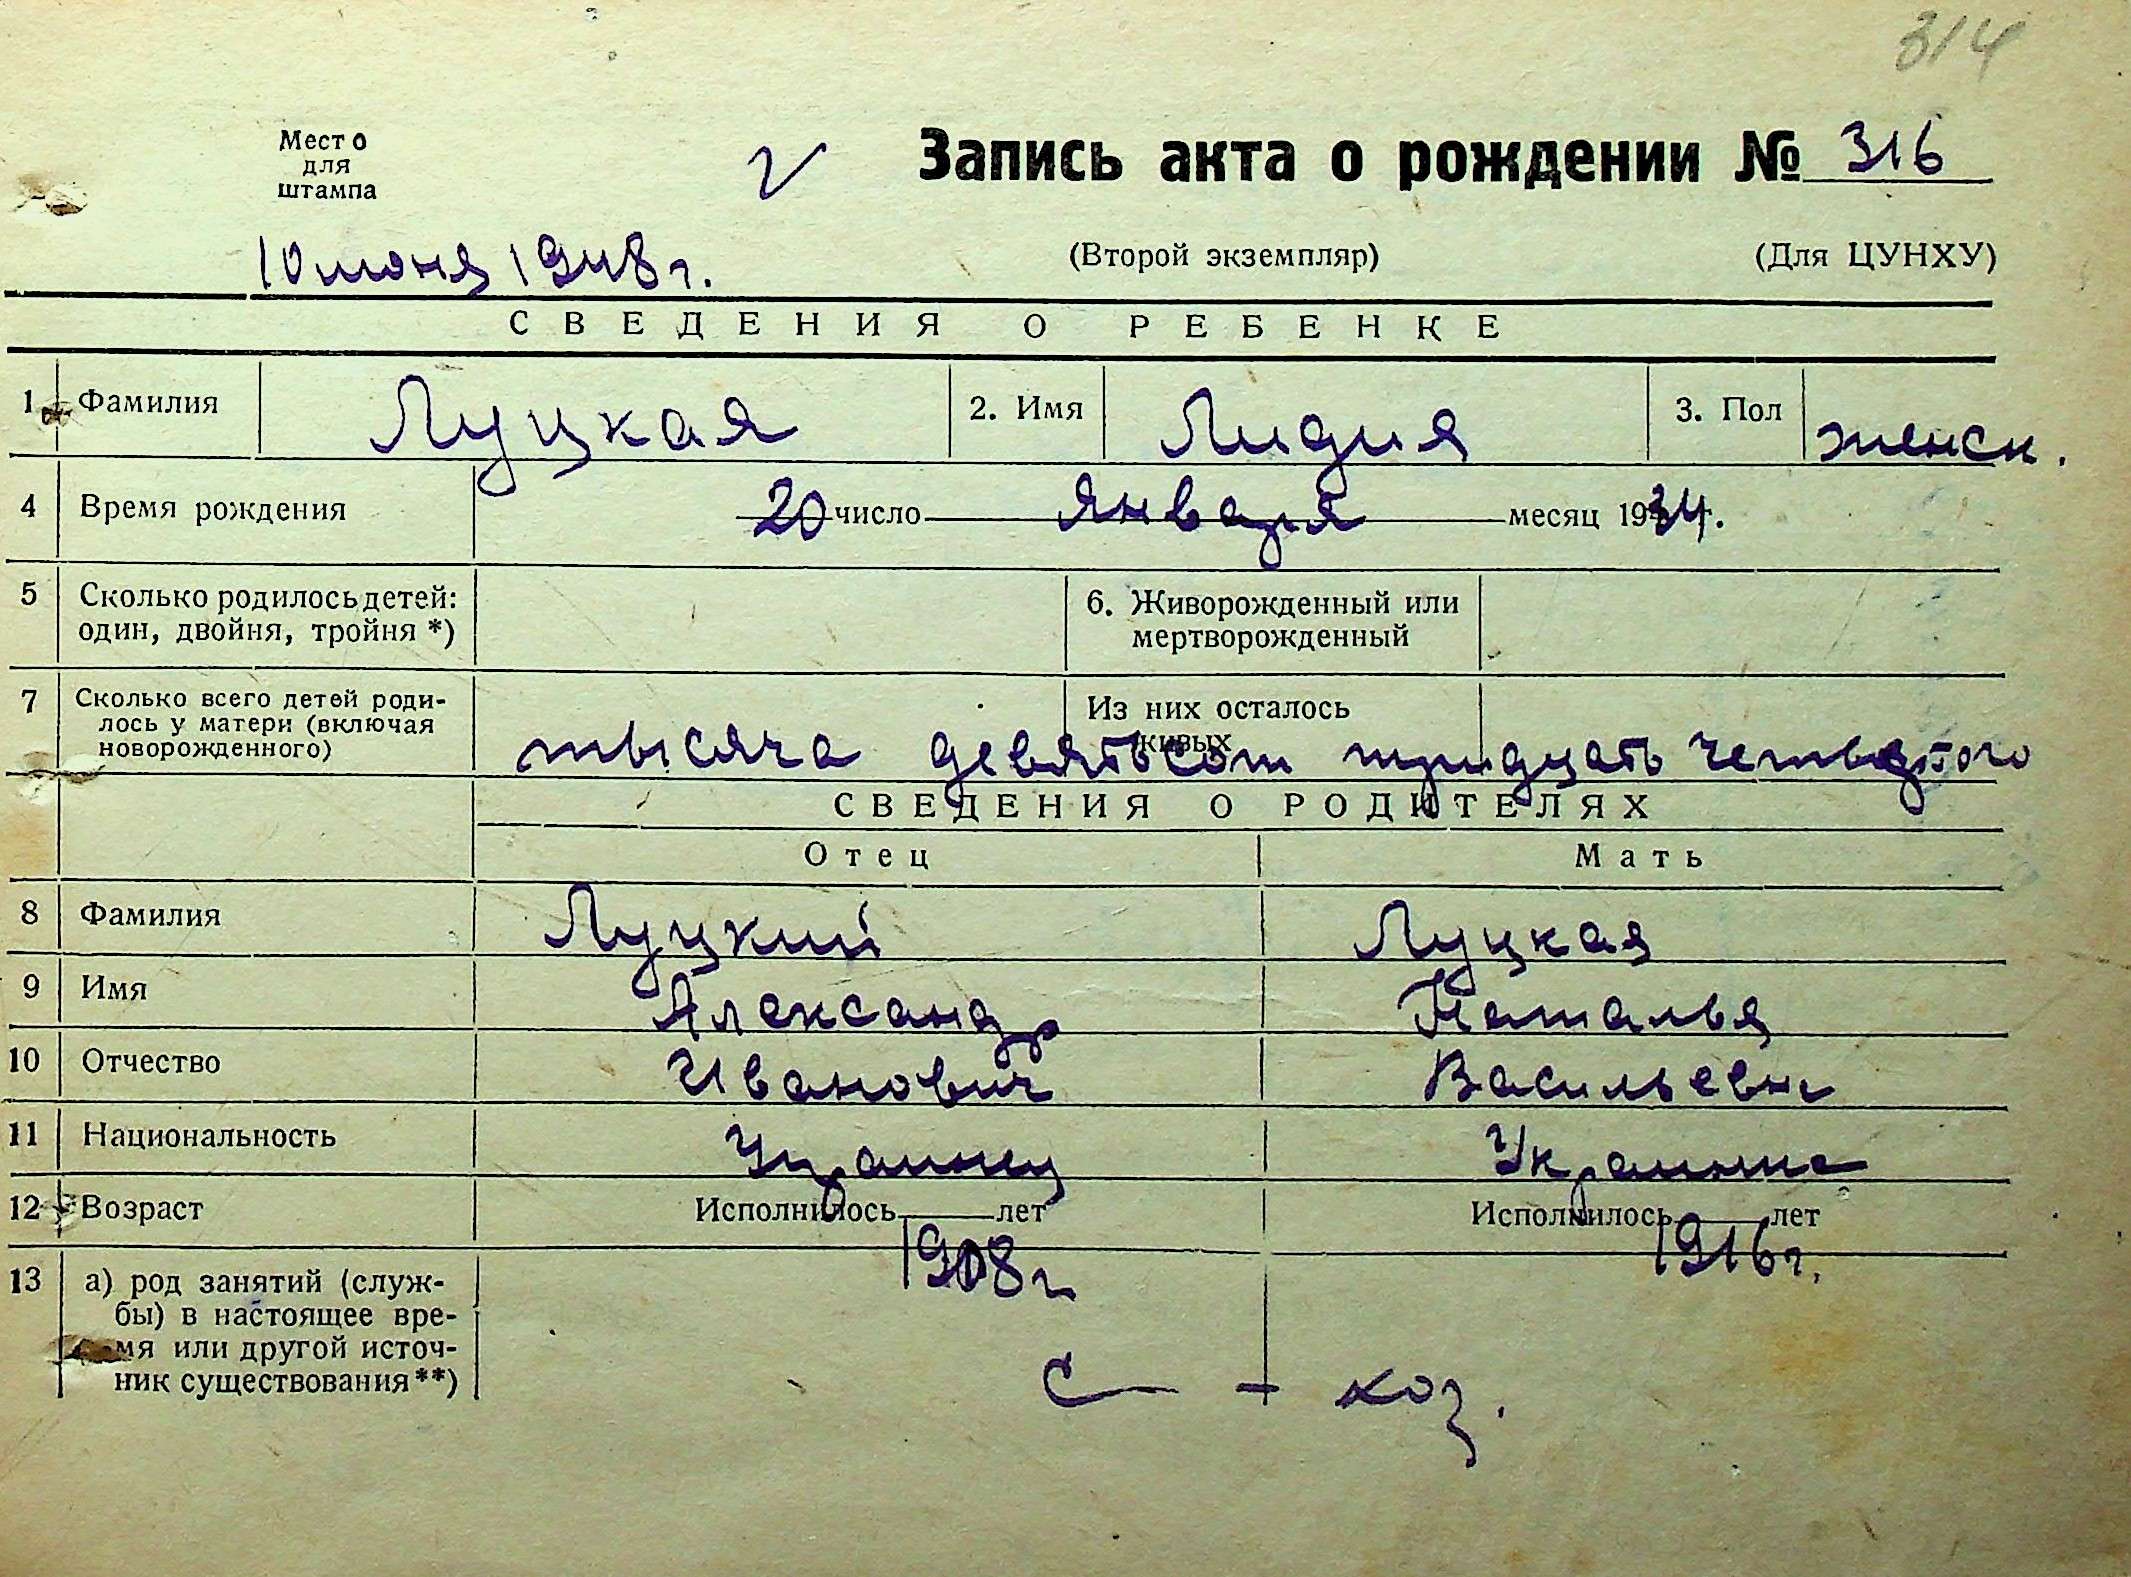 314
Место
для
штампа
Запись акта о рождении № 316
10 июня 1948 г.
(Второй экземпляр) (Для ЦУНХУ)
СВЕДЕНИЯ О РЕБЕНКЕ
1 Фамилия Луцкая 2. Имя Лидия 3. Пол женск.
4 Время рождения 20 число января месяц 1934 г.
5 Сколько родилось детей: один, двойня, тройня *) 6. Живорожденный или мертворожденный
7 Сколько всего детей роди-
лось у матери (включая
новорожденного) Из них осталось живых
тысяча девятьсот тридцать четвертого
СВЕДЕНИЯ О РОДИТЕЛЯХ
Отец Мать
8 Фамилия Луцкий Луцкая
9 Имя Александр Наталья
10 Отчество Иванович Васильевн
11 Национальность Украинец Украинка
12 Возраст Исполнилось лет Исполнилось лет
1908 г 1916 г.
13 а) род занятий (служ-
бы) в настоящее вре-
мя или другой источ-
ник существования **)
с — хоз.